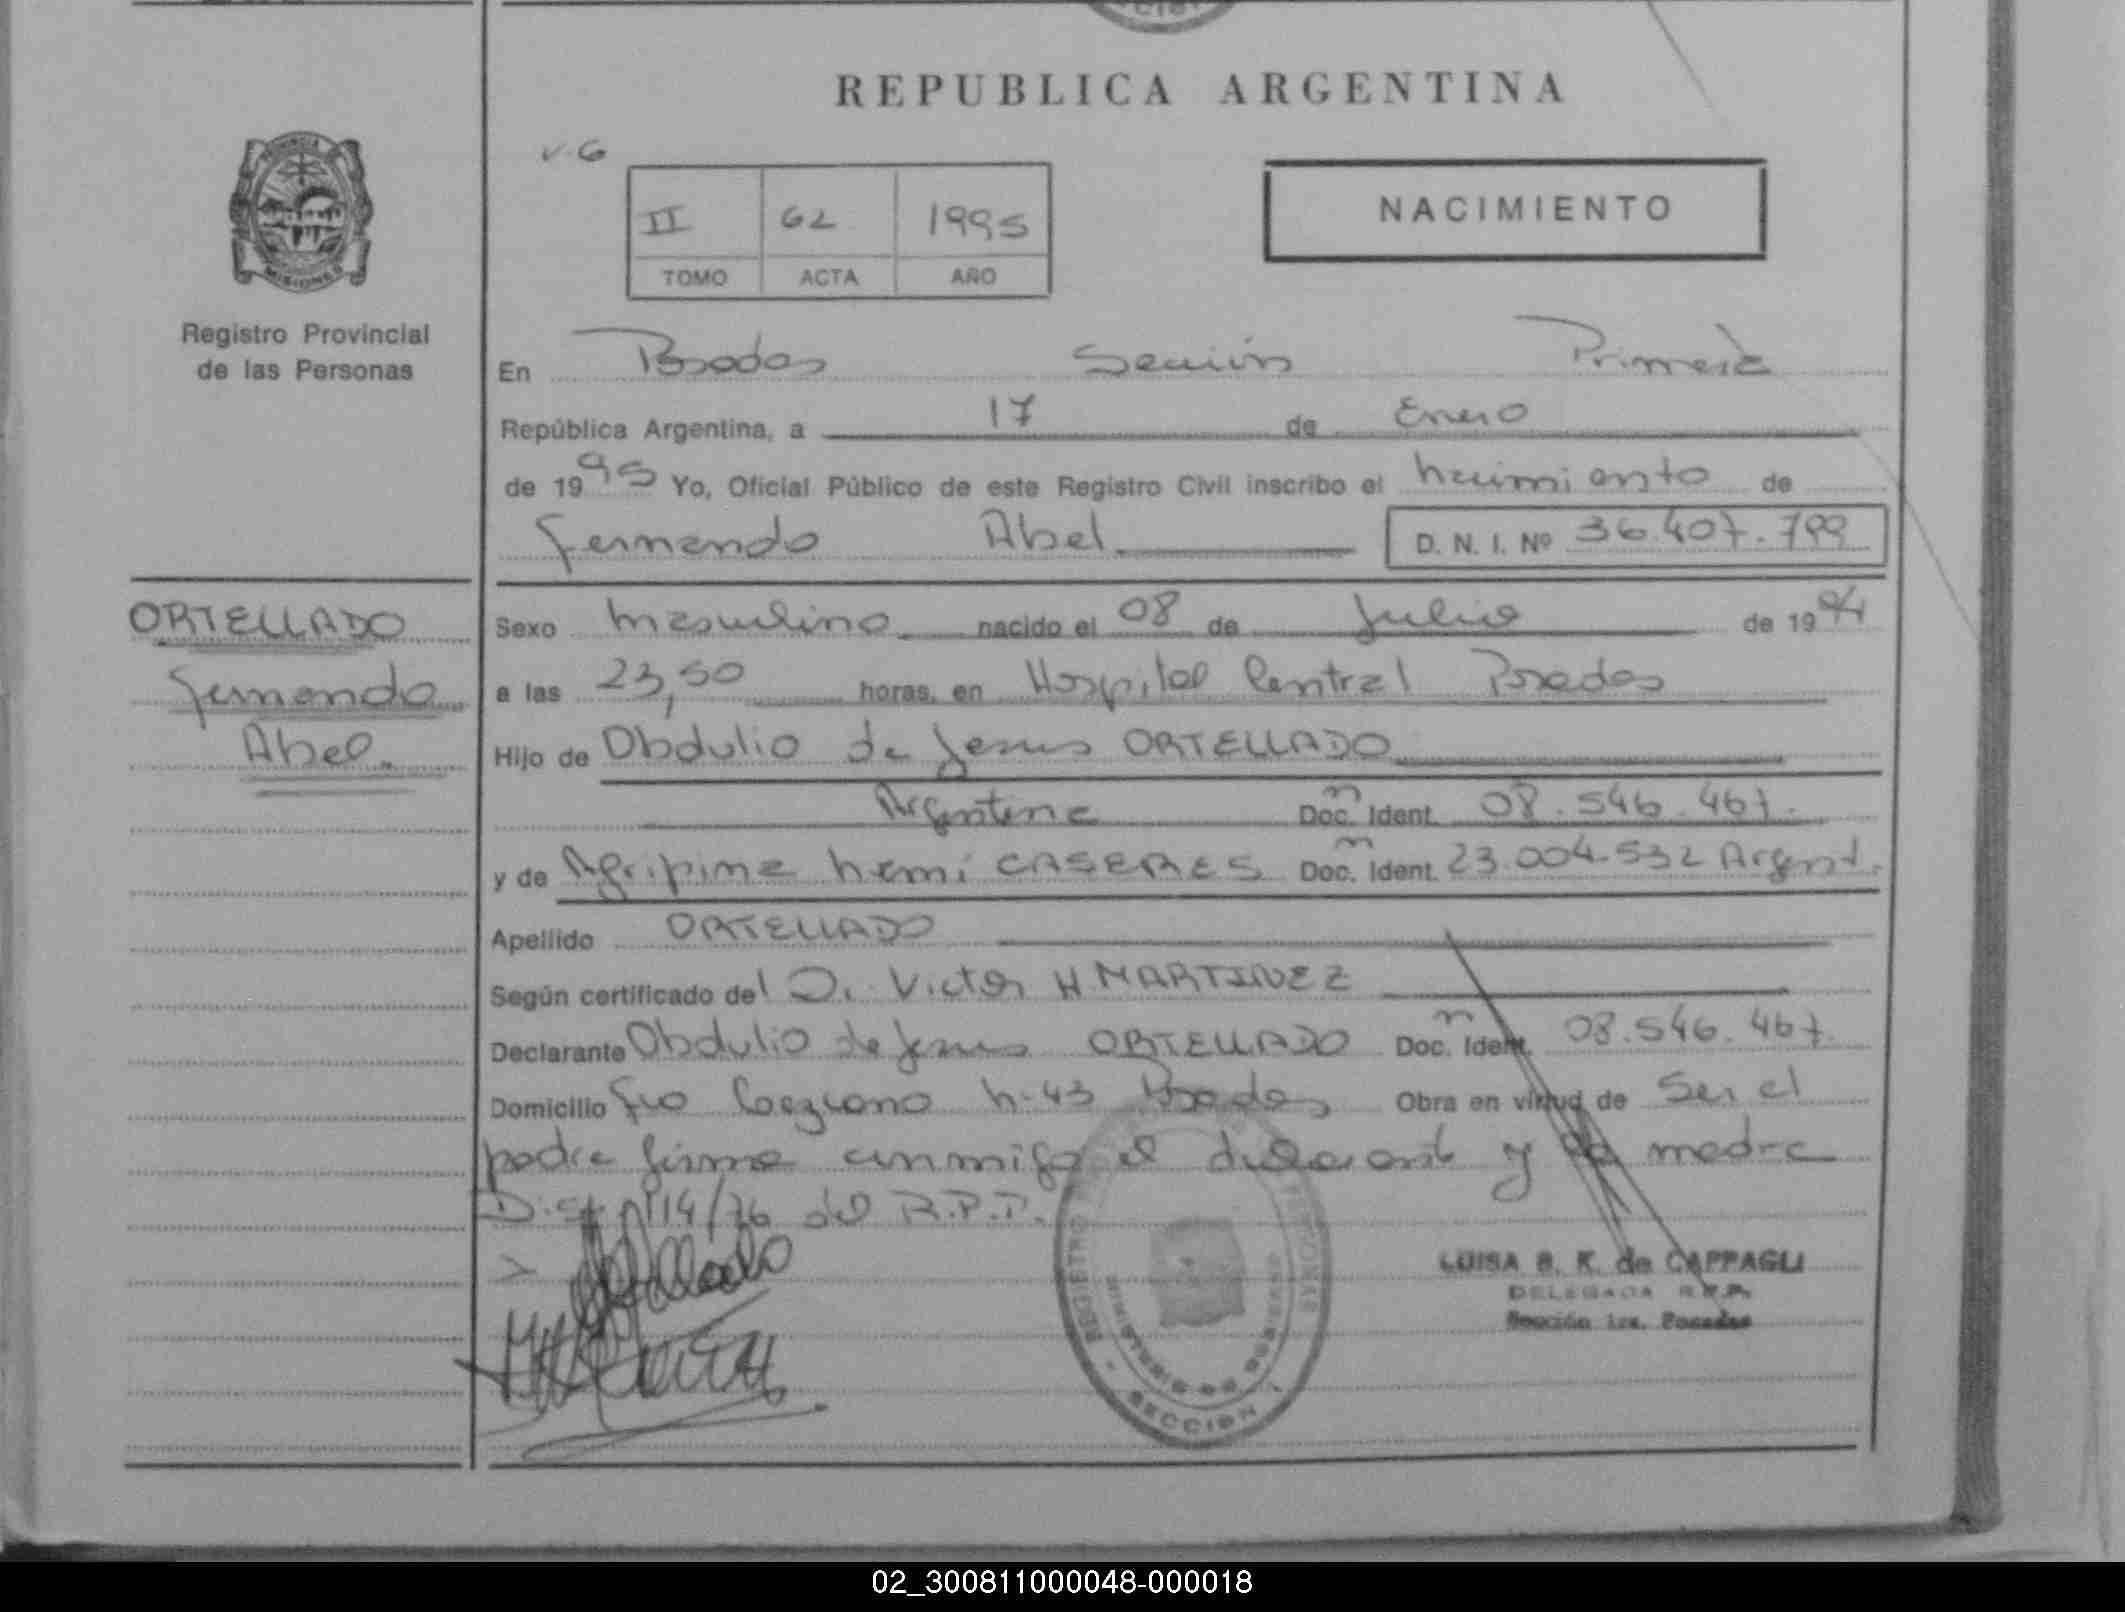 REPUBLICA ARGENTINA
PROVINCIA
MISIONES
Registro Provincial
de las Personas
V.G
II 62 1995
TOMO ACTA AÑO
NACIMIENTO
En Posadas Sección Primera
República Argentina, a 17 de Enero
de 1995 Yo, Oficial Público de este Registro Civil inscribo el nacimiento de
Fernando Abel D. N. I. Nº 36.407.799
ORTELLADO
Fernando
Abel.
Sexo Masculino nacido el 08 de Julio de 1994
a las 23,50 horas, en Hospital Central Posadas
Hijo de Obdulio de Jesus ORTELLADO
Argentina Doc. Ident. 08.546.467.
y de Agripina Nemi CASERES Doc. Ident. 23.004.532 Argent.
Apellido ORTELLADO
Según certificado del D. Victor H MARTINEZ
Declarante Obdulio de Jesus ORTELLADO Doc. Ident. 08.546.467.
Domicilio N-43 Posadas Obra en virtud de Ser el
padre firma conmigo el declarante y la madre
Disp. nº 14/76 del R.P.P.
REGISTRO PERSONAS
MINISTERIO DE GOBIERNO
SECCION 1
LUISA B. K. de CAPPAGLI
DELEGADA R.P.P.
Sección 1ra. Posadas
02_300811000048-000018